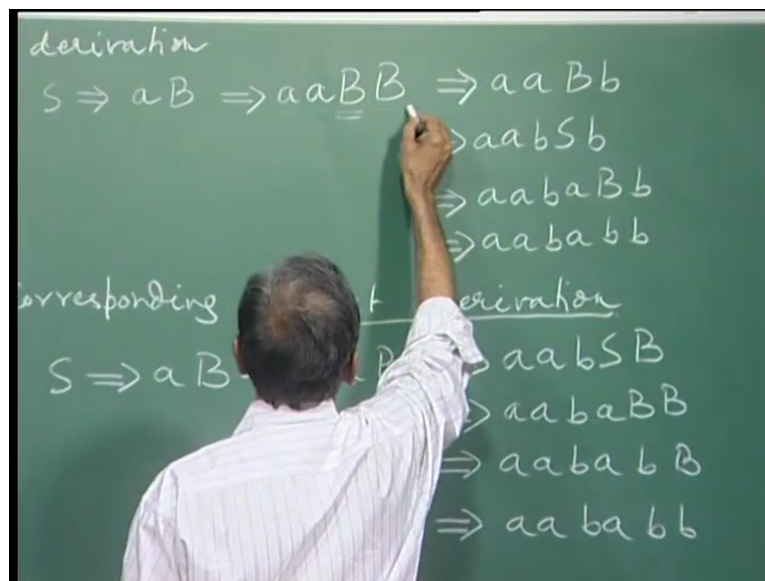 derivation
S ⇒ aB ⇒ aaBB ⇒ aaBb
⇒ aabSb
⇒ aabaBb
⇒ aababb
orresponding t erivation
S ⇒ aB aabSB
⇒ aabaBB
⇒ aababB
⇒ aababb